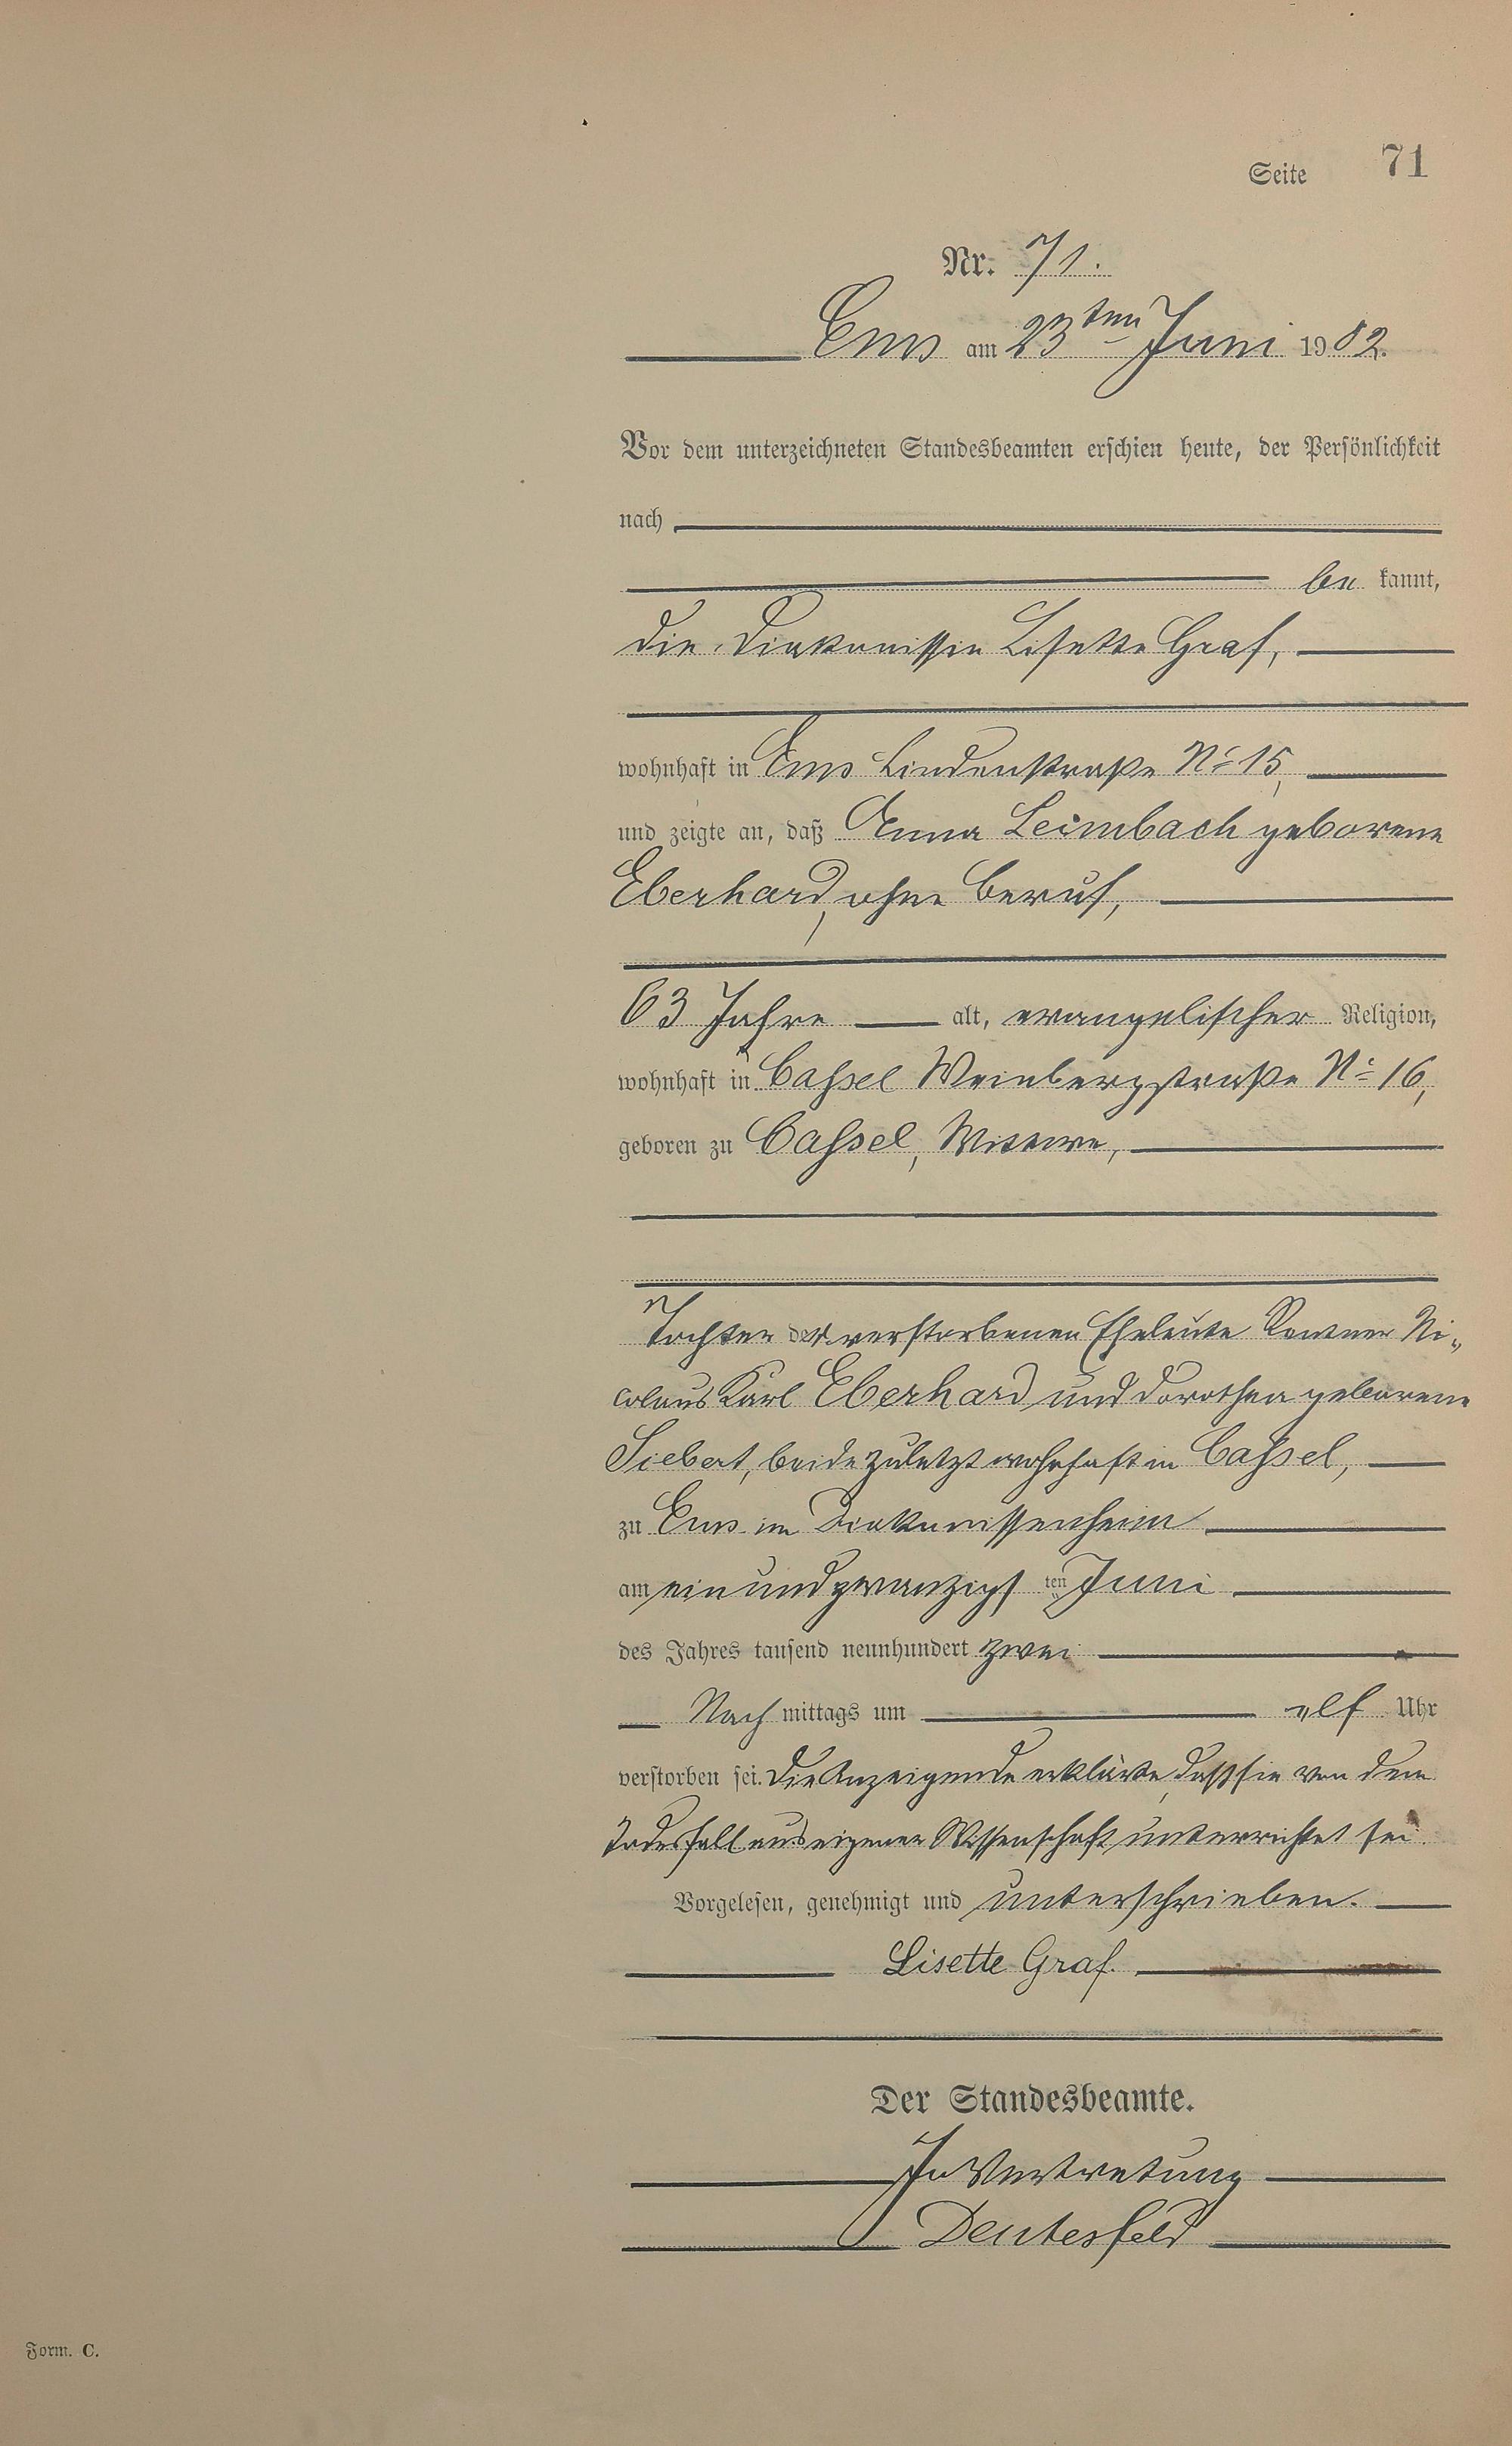 Seite 71
Nr. 71.
Ems am 23ten Juni 1902.
Vor dem unterzeichneten Standesbeamten erschien heute, der Persönlichkeit
nach
be kannt,
die Diakonissin Lisette Graf,
wohnhaft in Ems Lindenstraße No 15,
und zeigte an, daß Anna Leimbach geborene
Eberhard, ohne Beruf,
63 Jahre alt, evangelischer Religion,
wohnhaft in Cassel Weinbergstraße No 16,
geboren zu Cassel, Wittwe,
Tochter der verstorbenen Eheleute Rentner Ni-
colaus Karl Eberhard und Dorothea geborene
Siebert, beide zuletzt wohnhaft in Cassel,
zu Ems im Diakonissenheim
am einundzwanzigs ten Juni
des Jahres tausend neunhundert zwei
Nach mittags um elf Uhr
verstorben sei. Die Anzeigende erklärte, daß sie von dem
Todesfall aus eigener Wissenschaft unterrichtet sei.
Vorgelesen, genehmigt und unterschrieben.
Lisette Graf.
Der Standesbeamte.
In Vertretung
Deutesfeld
Form. C.